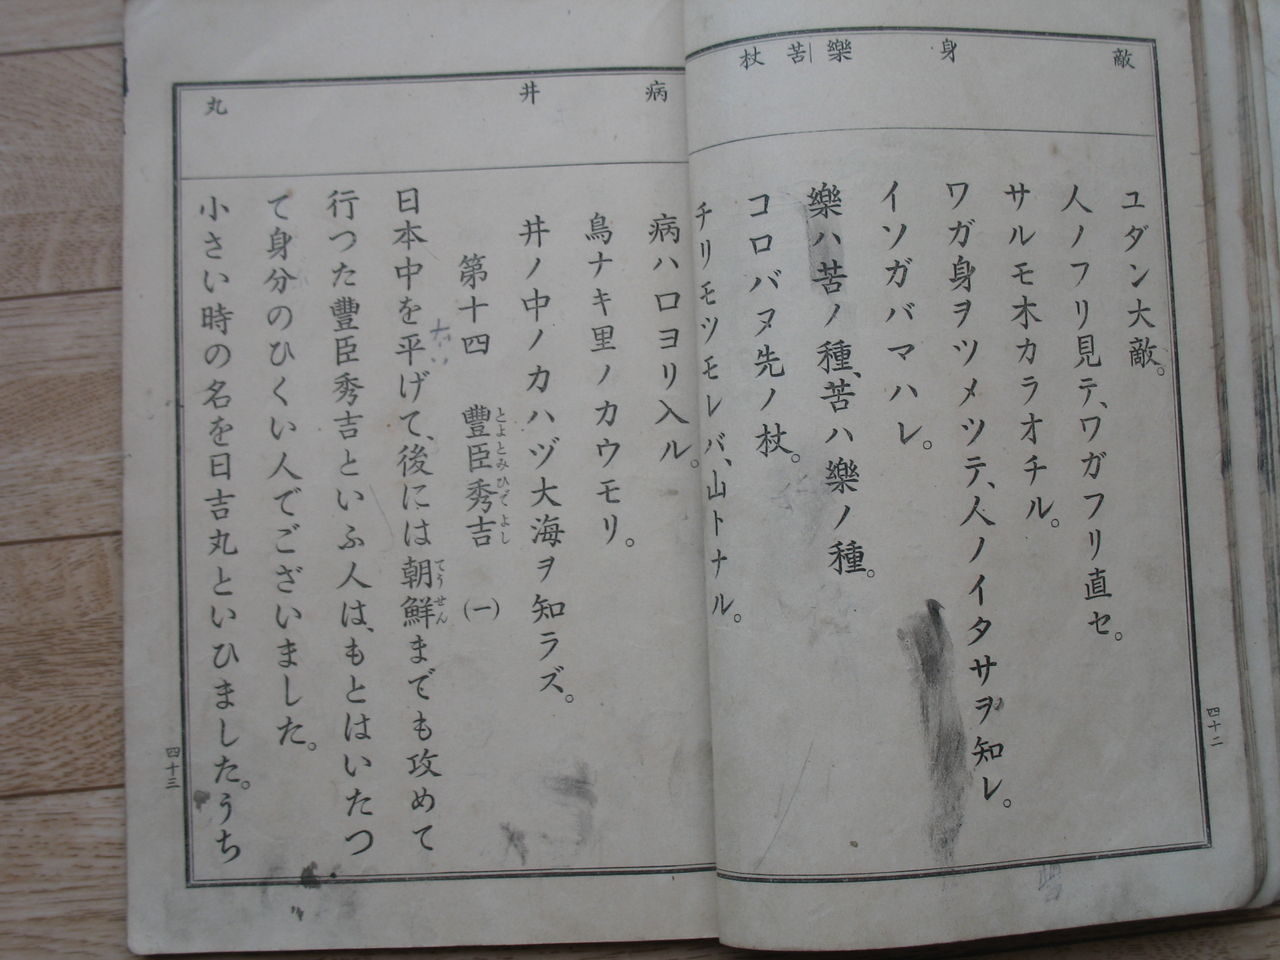 敵
身
樂
苦
杖
ユダン大敵。
人ノフリ見テ、ワガフリ直セ。
サルモ木カラオチル。
ワガ身ヲツメツテ、人ノイタサヲ知レ。
イソガバマハレ。
樂ハ苦ノ種、苦ハ樂ノ種。
コロバヌ先ノ杖。
チリモツモレバ、山トナル。
四十二
病
井
丸
病ハ口ヨリ入ル。
鳥ナキ里ノカウモリ。
井ノ中ノカハヅ大海ヲ知ラズ。
第十四 豐臣秀吉 (一)
とよとみひでよし
日本中を平げて、後には朝鮮までも攻めて
てうせん
行つた豐臣秀吉といふ人は、もとはいたつ
て身分のひくい人でございました。
小さい時の名を日吉丸といひました。うち
四十三